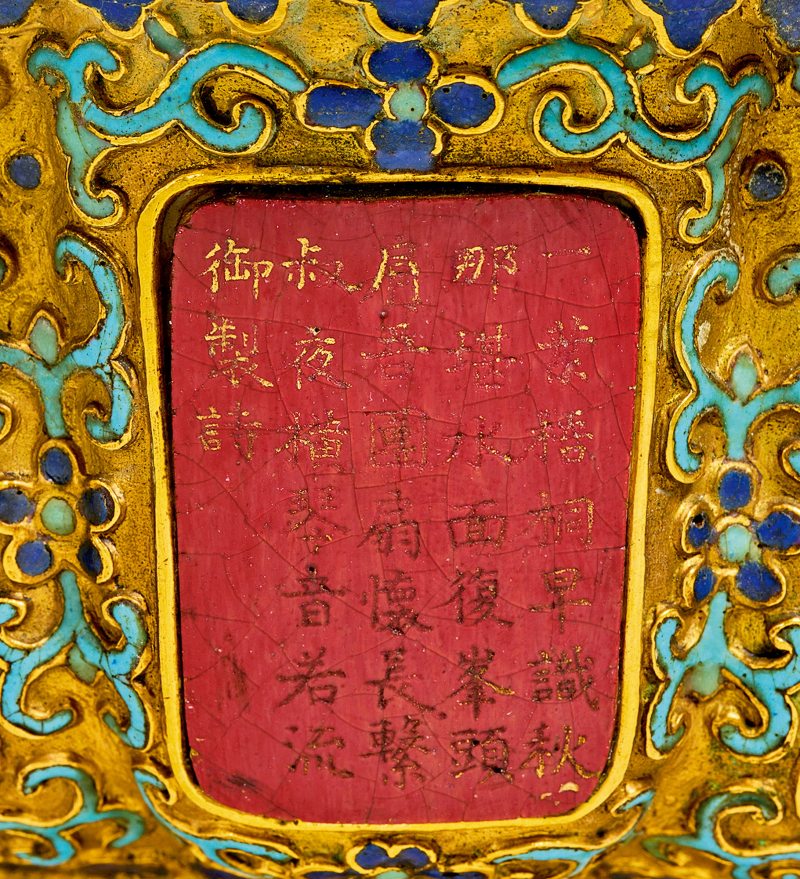 一葉梧桐早識秋
那堪水面復峯頭
肩吾團扇懷長繫
叔夜橫琴音若流
御製詩